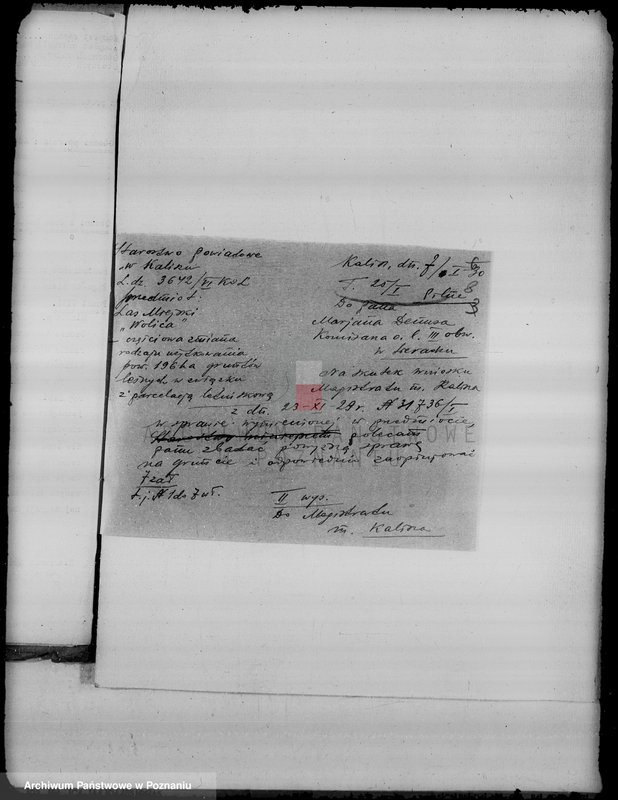 Starostwo Powiatowe
w Kaliszu
L.dz. 3642/VI KoL
Przedmiot:
Las Miejski
"Wolica"
częściowa zmiana
rodzaju użytkowania
pow. 196 ha gruntów
leśnych w związku
z parcelacją leśniczówką
Kalisz, dn. 7/I 30
T. 20/I Pilne
Do Pana
Marjana Denusa
Komisarza o. l. III obw.
w Sieradzu
Na skutek wniosku
Magistratu m. Kalisza
z dn. 23-XI 29 r. № 31736/I
w sprawie wymienionej w przedmiocie,
polecam
Panu zbadać powyższą sprawę
na gruncie i odpowiednio zaopiniować
7 zał
t.j. № 1 do 7 wł.
II wys.
Do Magistratu
m. Kalisza
Archiwum Państwowe w Poznaniu